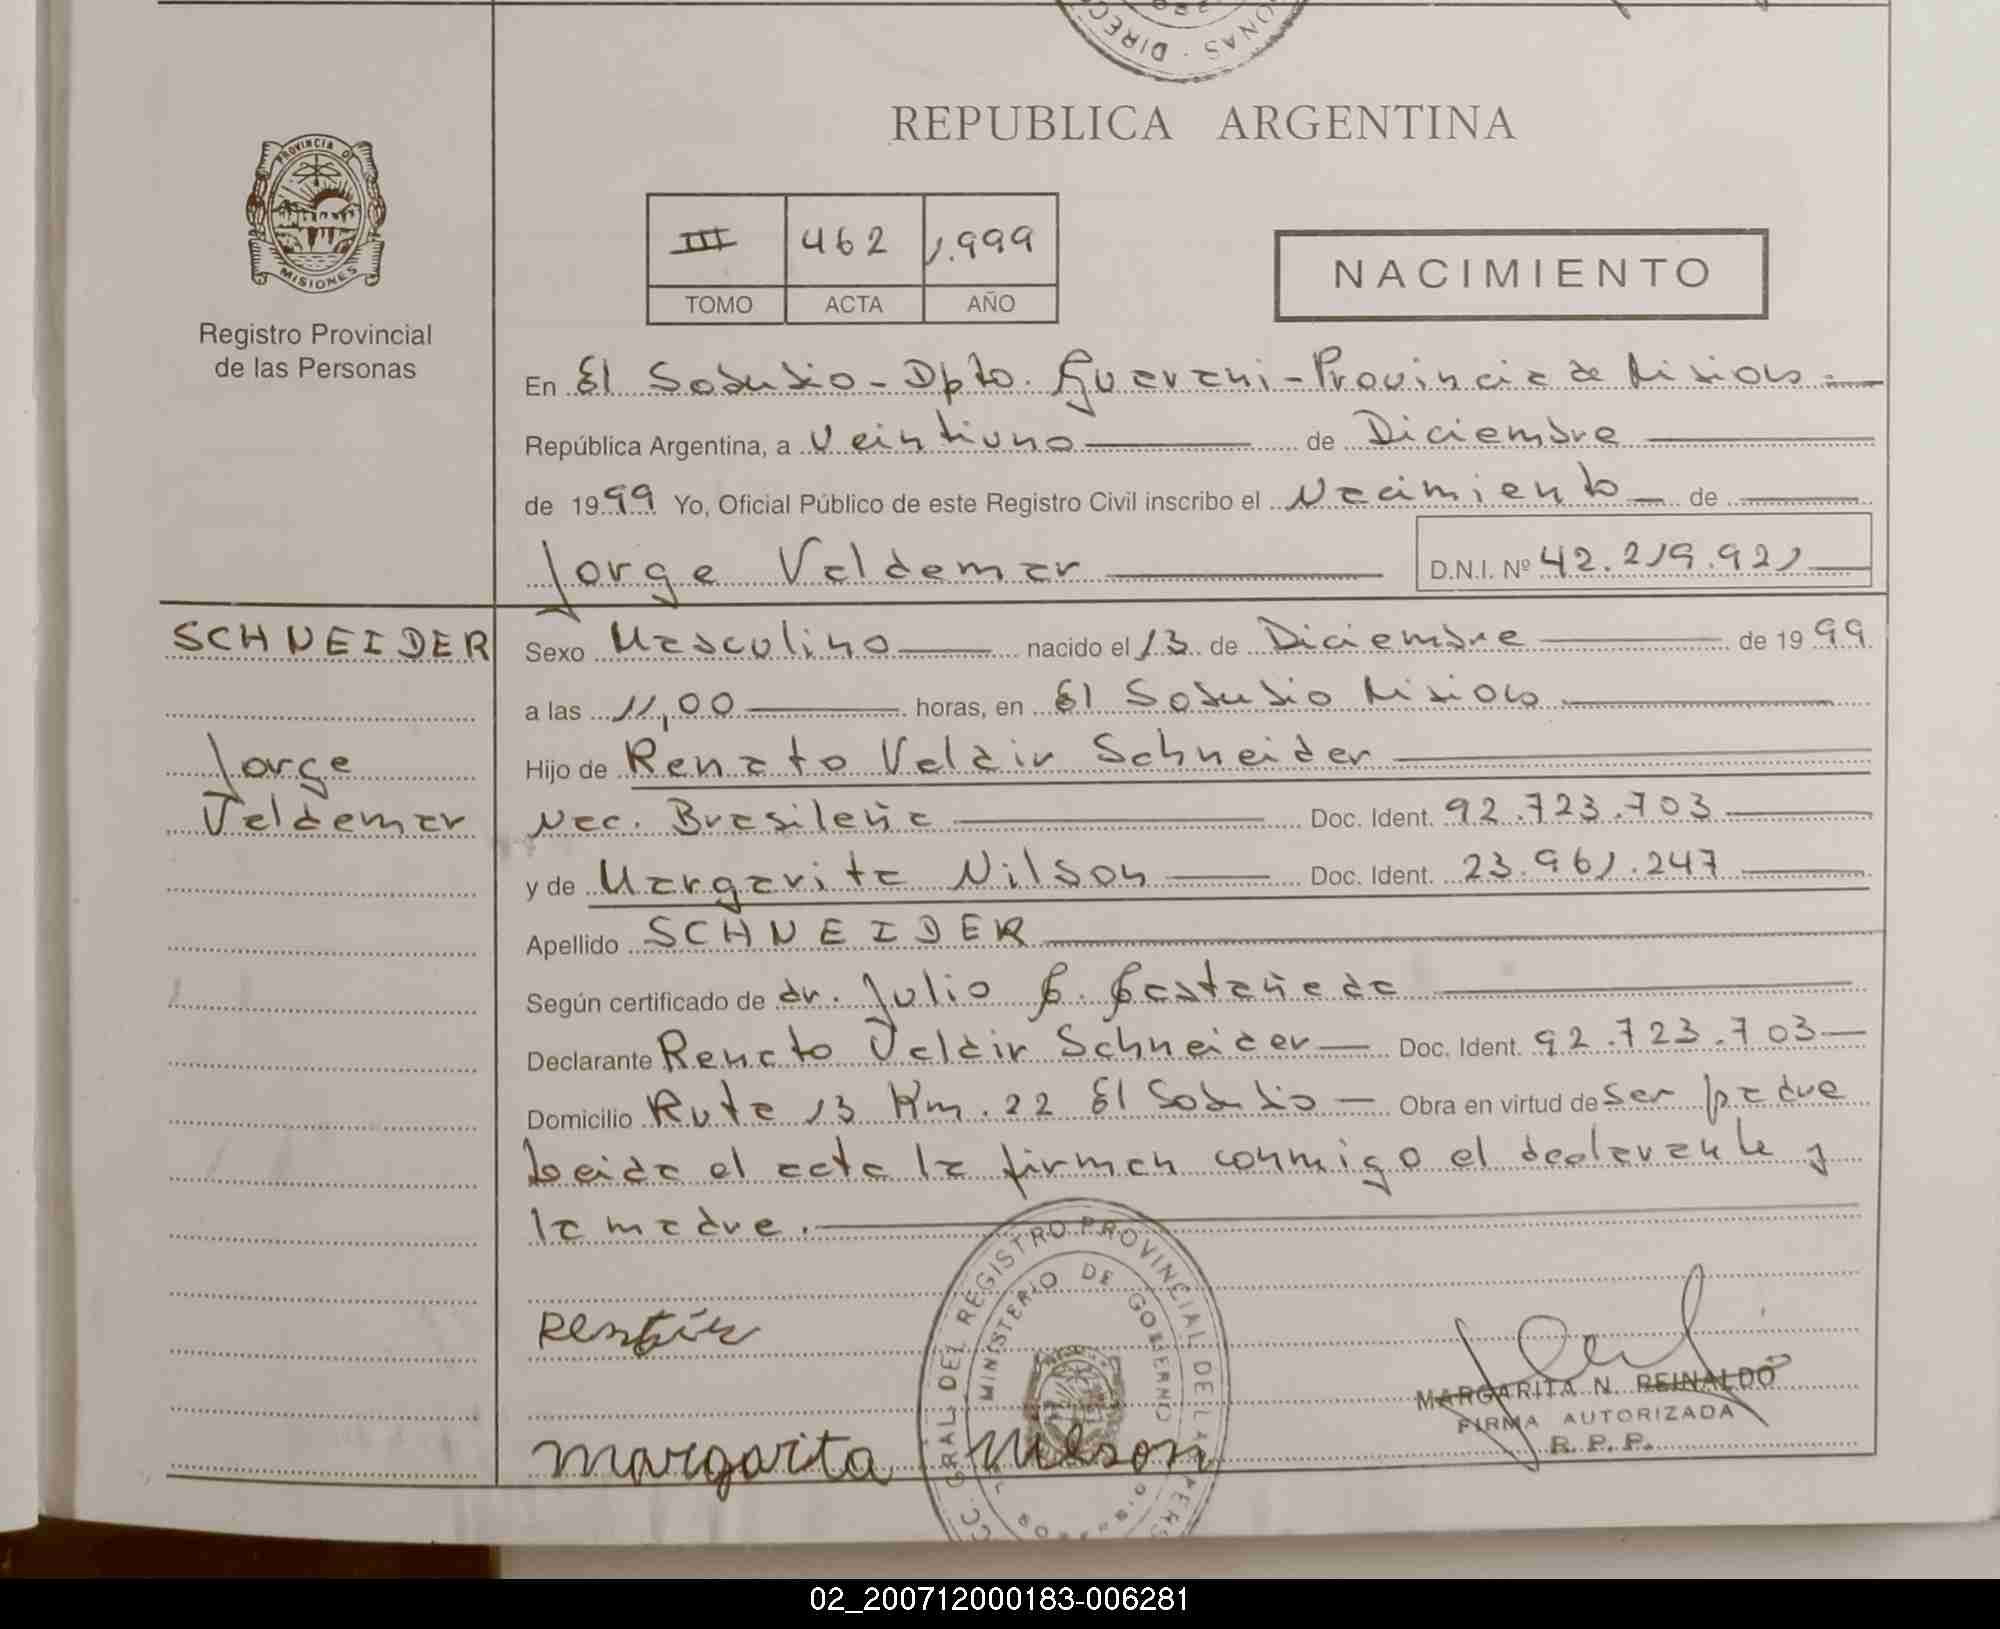 REPUBLICA ARGENTINA
PROVINCIA DE MISIONES
Registro Provincial
de las Personas
III 462 1.999
TOMO ACTA AÑO
NACIMIENTO
En El Soberbio - Dpto. Guarani - Provincia de Misiones
República Argentina, a Veintiuno de Diciembre
de 1999 Yo, Oficial Público de este Registro Civil inscribo el Nacimiento de
Jorge Valdemar D.N.I. Nº 42.219.921
SCHNEIDER
Jorge
Valdemar
Sexo Masculino nacido el 13 de Diciembre de 1999
a las 11,00 horas, en El Soberbio Misiones
Hijo de Renato Valdir Schneider
Nac. Brasileña Doc. Ident. 92.723.703
y de Margarita Nilson Doc. Ident. 23.961.247
Apellido SCHNEIDER
Según certificado de dr. Julio C. Castañeda
Declarante Renato Valdir Schneider Doc. Ident. 92.723.703
Domicilio Ruta 13 Km. 22 El Soberbio Obra en virtud de ser padre
Leida el acta la firman conmigo el declarante y
la madre.
REGISTRO PROVINCIAL DE LAS PERS
MINISTERIO DE GOBIERNO
margarita nilson
MARGARITA N. REINALDO
FIRMA AUTORIZADA
R. P. P.
02_200712000183-006281